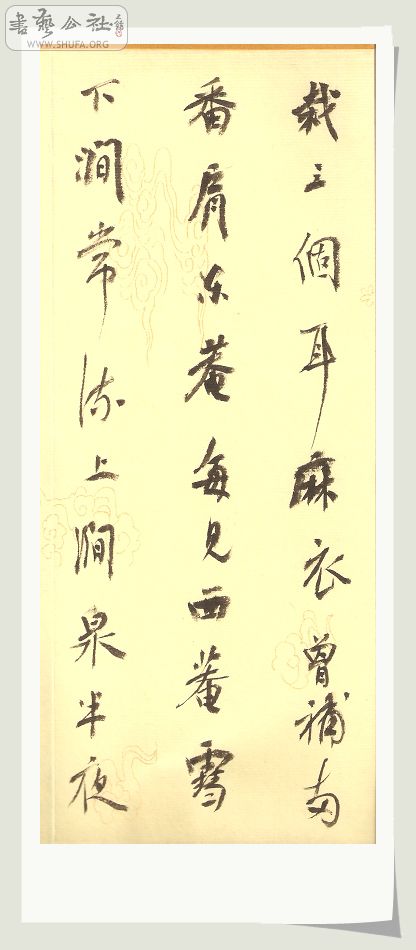 書藝公社
WWW.SHUFA.ORG
裁三個耳麻衣曾補兩
番肩東菴每見西菴雪
下澗常流上澗泉半夜